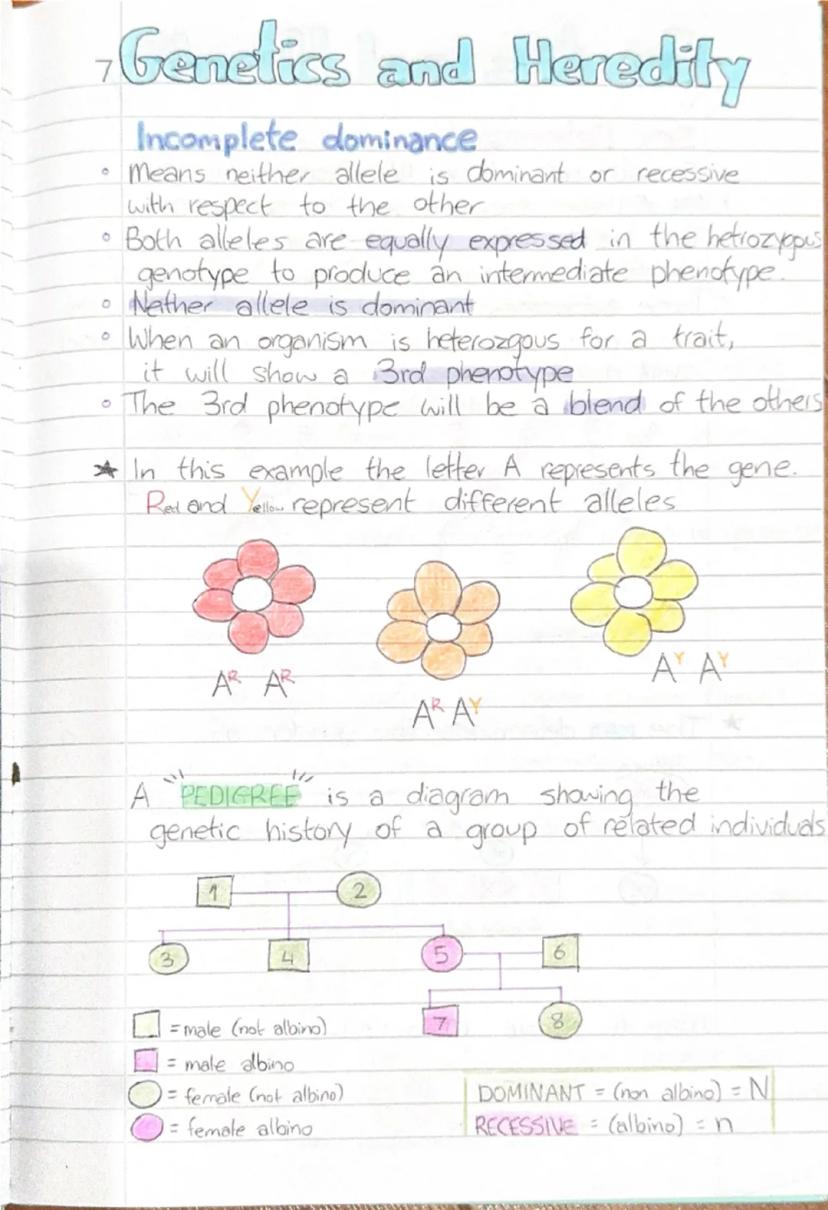 7 Genetics and Heredity
Incomplete dominance
° Means neither allele is dominant or recessive
with respect to the other
° Both alleles are equally expressed in the hetrozygous
genotype to produce an intermediate phenotype.
° Nether allele is dominant
° When an organism is heterozgous for a trait,
it will show a 3rd phenotype
° The 3rd phenotype will be a blend of the others
★ In this example the letter A represents the gene.
Red and Yellow represent different alleles
Aᴿ Aᴿ
Aᴿ Aʸ
Aʸ Aʸ
A "PEDIGREE" is a diagram showing the
genetic history of a group of related individuals
1 2
3 4 5 6
7 8
= male (not albino)
= male albino
= female (not albino)
= female albino
DOMINANT = (non albino) = N
RECESSIVE = (albino) = n